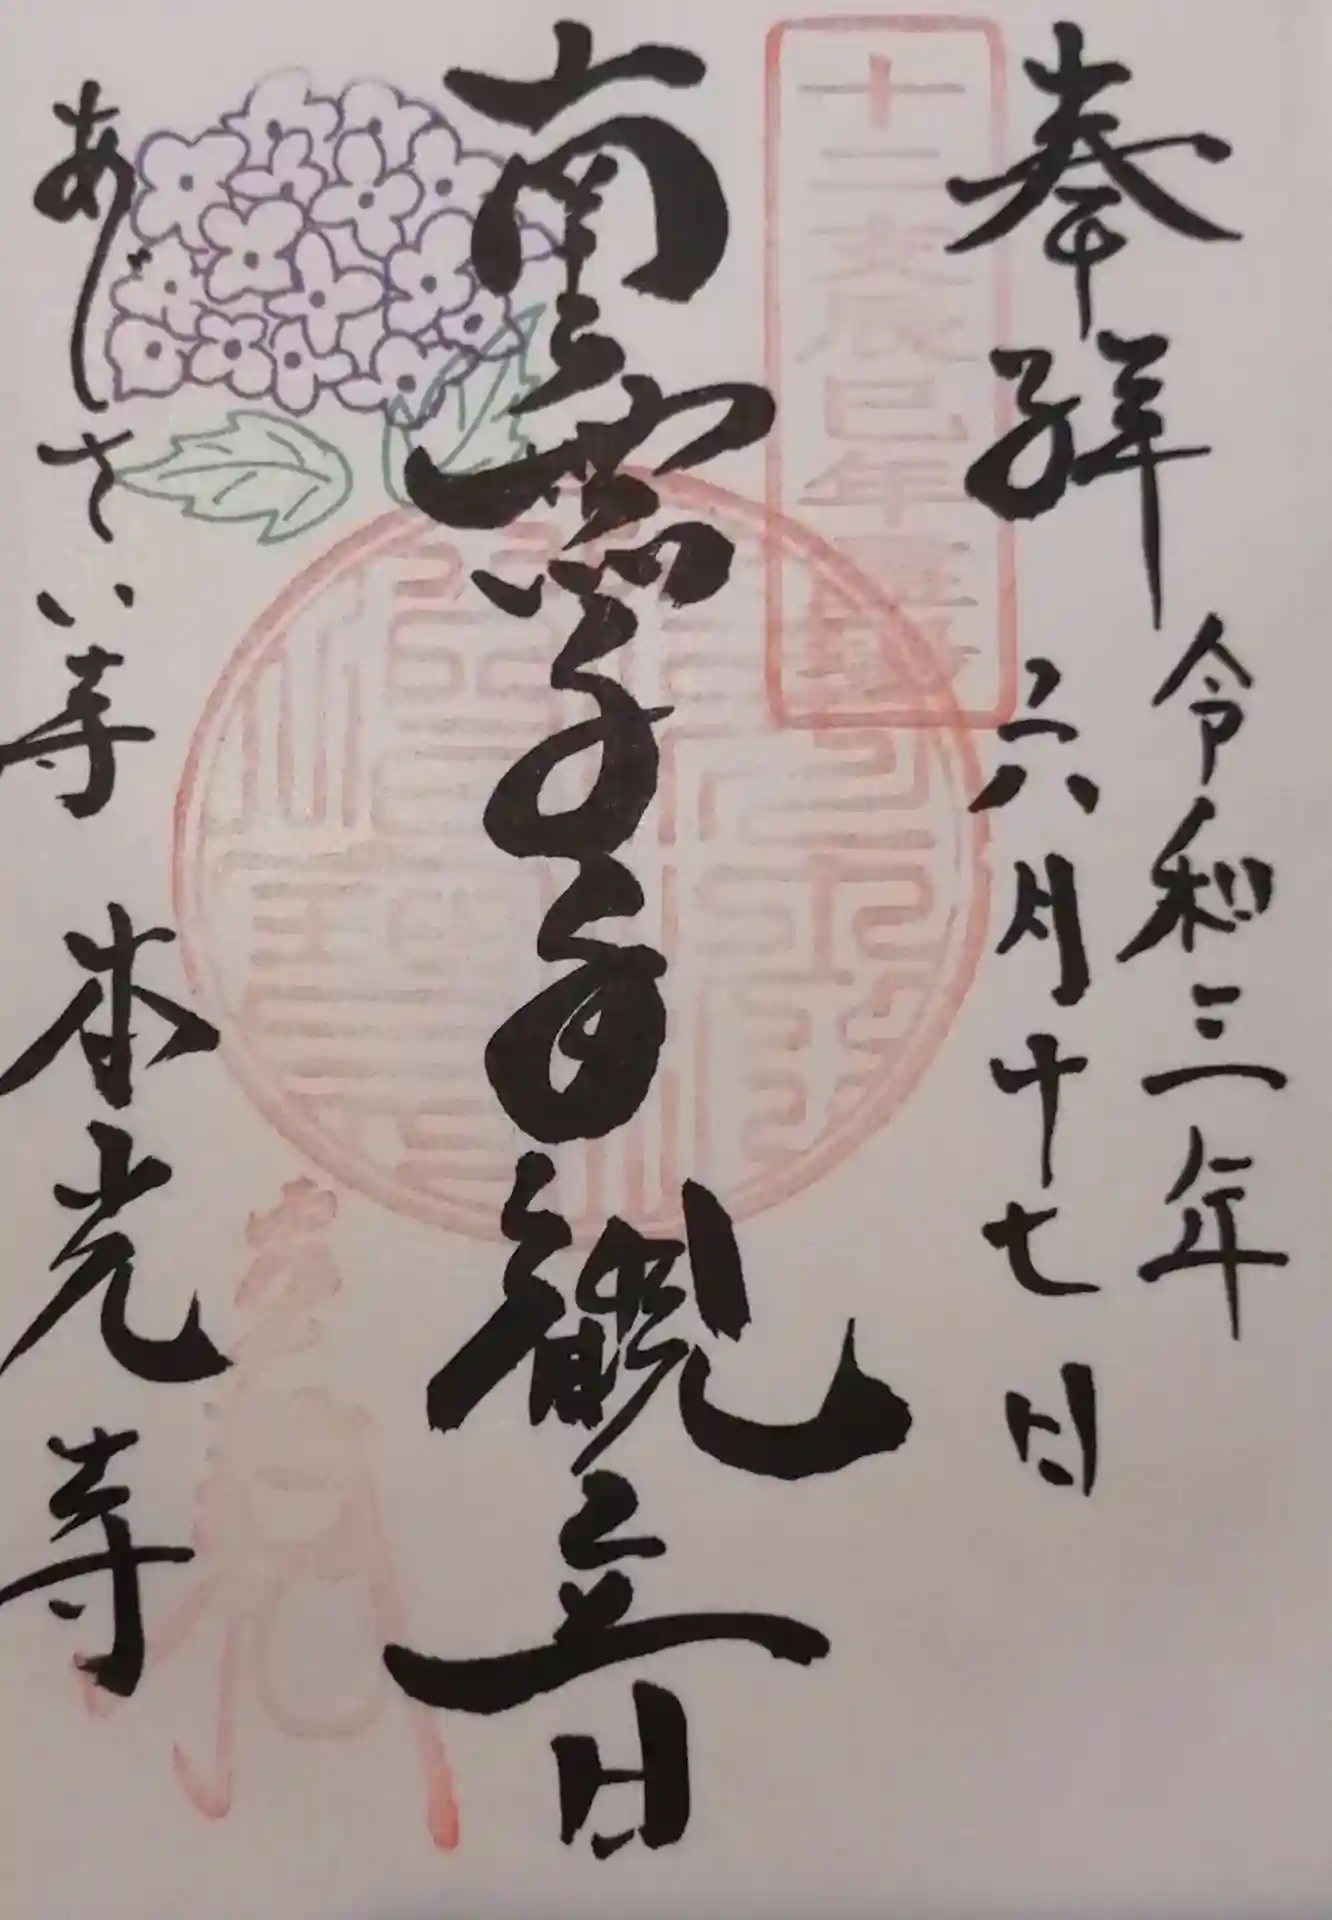 奉拝
令和三年
六月十七日
十二支辰巳年
南無千手観音
あじさい寺 本光寺